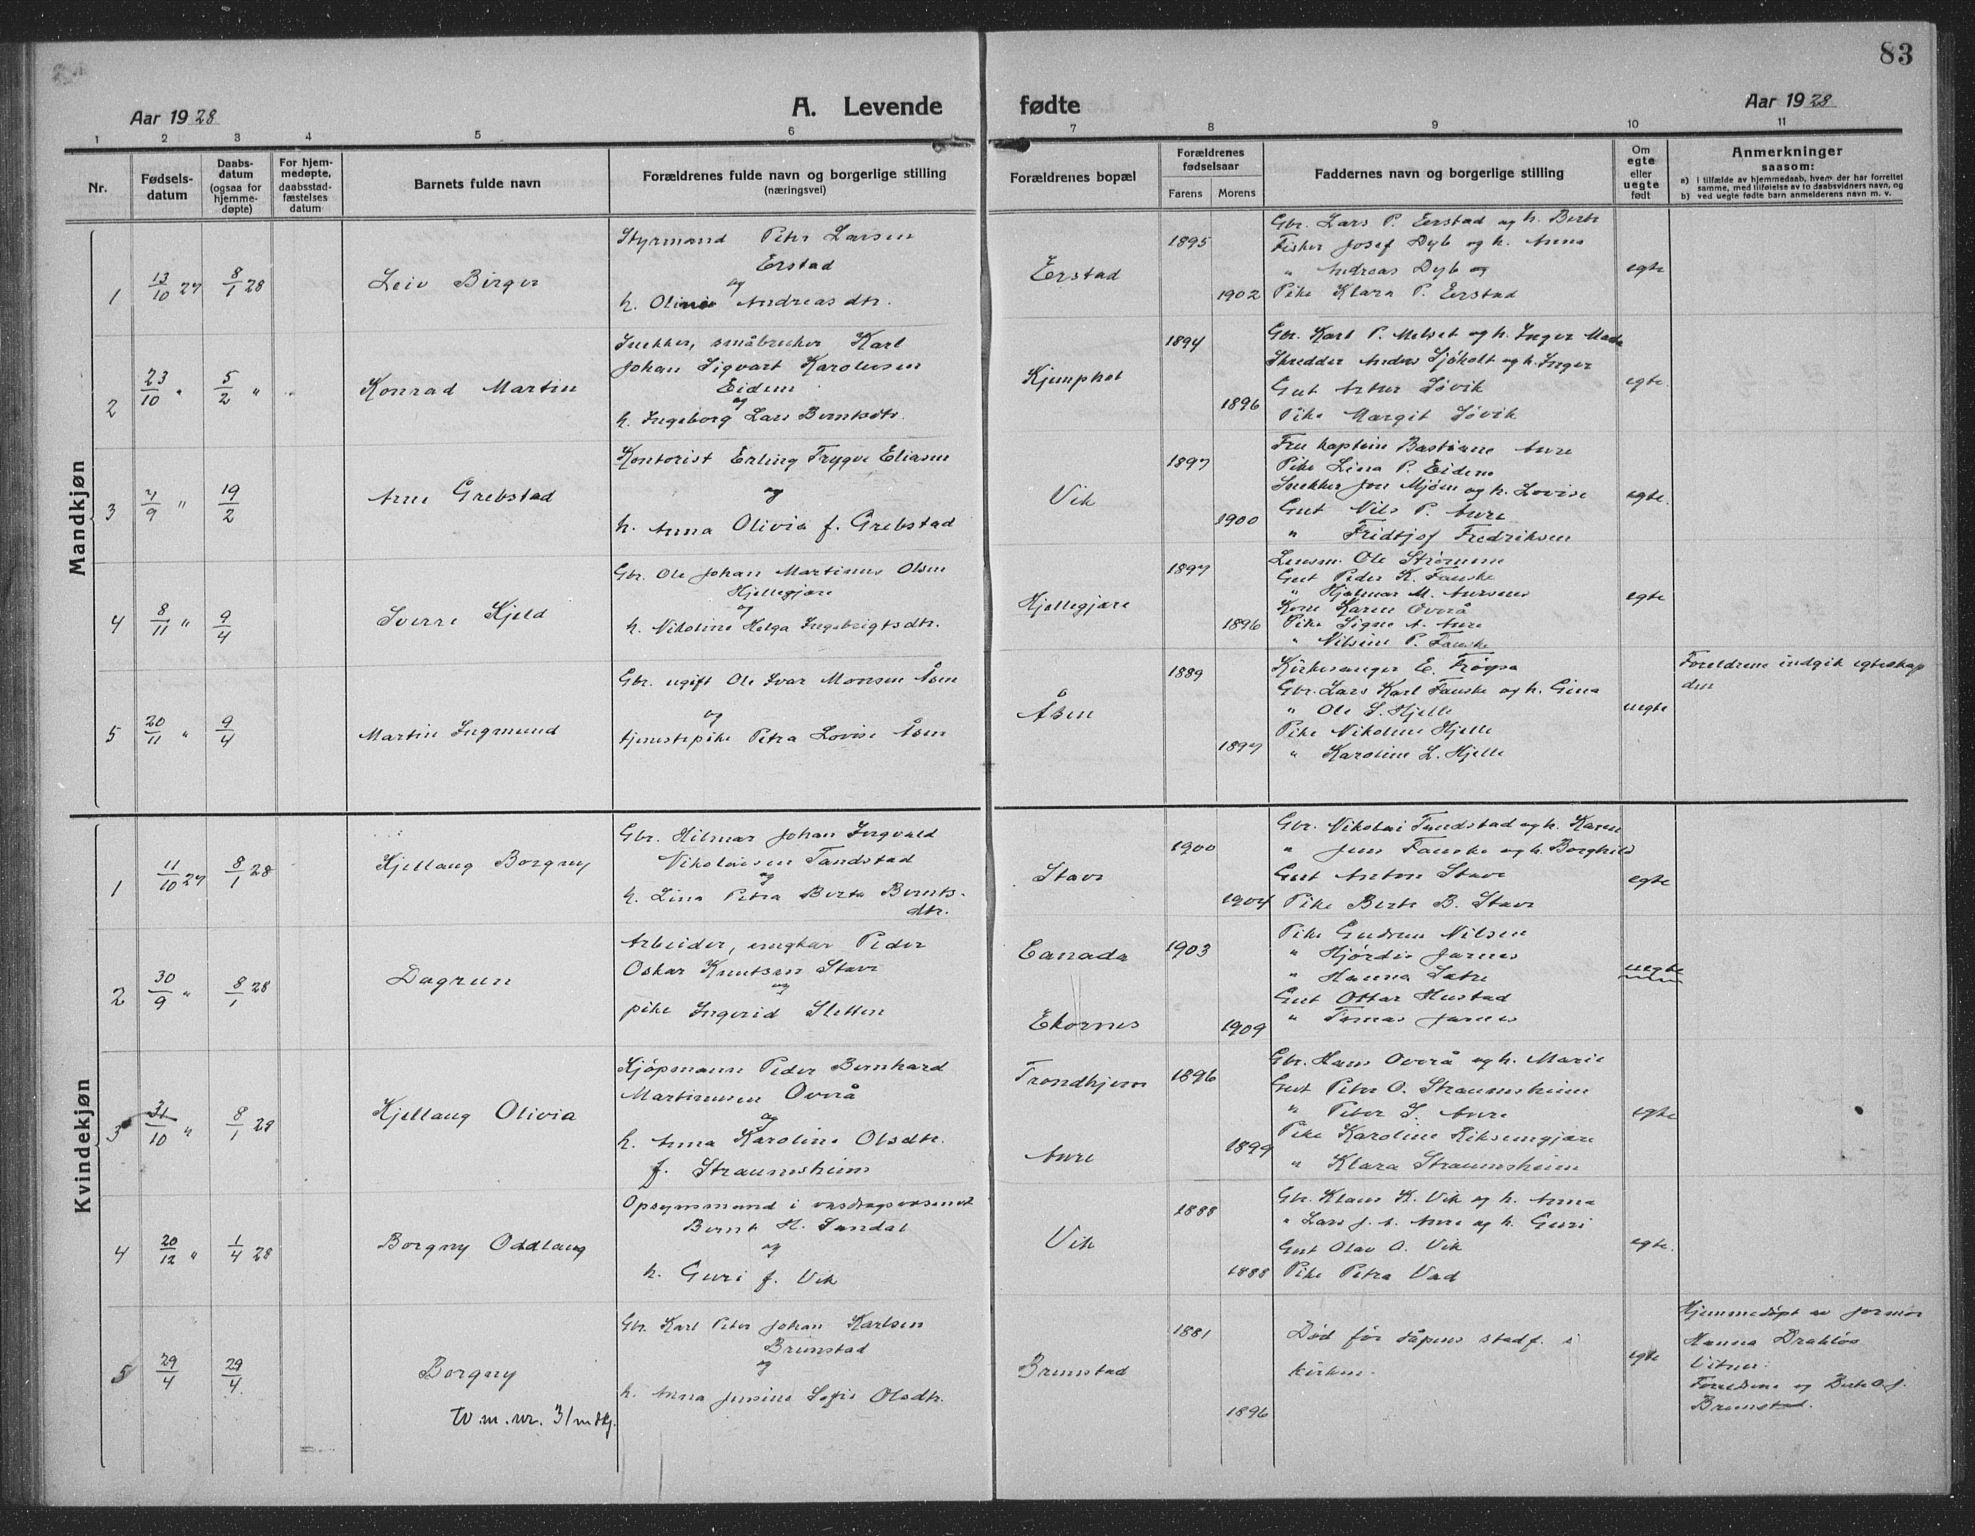 83
Aar 1928
A. Levende
fødte
Aar 1928
1 2 3 4 5 6 7 8 9 10 11
Nr.
Fødsels-
datum
Daabs-
datum
(ogsaa for
hjemme-
døpte)
For hjem-
medøpte,
daabsstad-
fæstelses
datum
Barnets fulde navn
Forældrenes fulde navn og borgerlige stilling
(næringsvei)
Forældrenes bopæl
Forældrenes
fødselsaar
Farens Morens
Faddernes navn og borgerlige stilling
Om
egte
eller
uegte
født
Anmerkninger
saasom:
a) i tilfælde av hjemmedaab, hvem der har forrettet
samme, med tilføielse av to daabsvidners navn, og
b) ved uegte fødte barn anmelderens navn m. v.
Mandkjøn
1
13/10 27
8/1 28
Leiv Birger
Styrmand Peter Larsen
Erstad
og
h. Oline Andreasdtr.
Erstad
1895
1902
Gbr. Lars P. Erstad og h. Berte
Fisker Josef Dyb og h. Anna
" Andreas Dyb og
Pike Klara P. Erstad
egte
2
23/10 "
5/2 "
Konrad Martin
Snekker, småbruker Karl
Johan Sigvart Karolusen
Eidem
og
h. Ingeborg Lars Berntsdtr.
Kjemphol
1894
1896
Gbr. Karl P. Melset og h. Inger Marie
Skredder Anders Sjøholt og h. Inger
Gut Artur Søvik
Pike Margit Søvik
egte
3
7/9 "
19/2
Arne Grebstad
Kontorist Erling Trygve Eliasen
og
h. Anna Olivia f. Grebstad
Vik
1897
1900
Fru kaptein Bastiane Aure
Pike Lina P. Eidem
Snekker Jon Mjøen og h. Lovise
Gut Nils P. Aure
" Fridtjof Fredriksen
egte.
4
8/11 "
9/4
Sverre Kjeld
Gbr. Ole Johan Martinus Olsen
Hjellegjære
og
h. Nikoline Helga Ingebrigtsdtr.
Hjellegjære
1897
1896
Lensm. Ole Strømme
Gut Peder K. Fauske
" Hjalmar M. Aursnes
Kone Karen Overå
Pike Signe A. Aure
" Nilsine P. Fauske
egte
5
20/11 "
9/4
Martin Ingmund
Gbr. ugift Ole Ivar Monsen Åsen
og
tjenestepike Petra Lovise Åsen
Åsen
1889
1897
Kirkesanger E. Frøysa
Gbr. Lars Karl Fauske og h. Gina
" Ole S. Hjelle
Pike Nikoline Hjelle
" Karoline L. Hjelle
uegte
Foreldrene indgik egteskap
den
Kvindekjøn
1
11/10 27
8/1 28
Kjellaug Borgny
Gbr. Hilmar Johan Ingvald
Nikolaisen Tandstad
og
h. Lina Petra Berta Bernts-
dtr.
Stave
1900
1904
Gbr. Nikolai Tandstad og h. Karen
" Jens Fauske og h. Borghild
Gut Anton Stave
Pike Berte B. Stave
egte
2
30/9 "
8/1 28
Dagrun
Arbeider, ungkar Peder
Oskar Knutsen Stave
og
pike Ingerid Sletten
Canada
Ekornes
1903
1909
Pike Gudrun Nilsen
" Hjørdis Jarnes
" Hanna Sætre
Gut Ottar Hustad
" Tomas Jarnes
uegte
3
31/10 "
8/1 28
Kjellaug Olivia
Kjøpmann Peder Bernhard
Martinusen Overå
og
h. Anna Karoline Olsdtr.
f. Straumsheim
Trondhjem
Aure
1896
1899
Gbr. Hans Overå og h. Marie
Gut Peter O. Straumsheim
" Peter S. Aure
Pike Karoline Riksemgjære
" Klara Straumsheim
egte
4
20/12 "
1/4 28
Borgny Oddlaug
Opsynsmand i vasdragsvæsenet
Bernt H. Sandal
og
h. Guri f. Vik
Vik
1888
1888
Gbr. Klaus K. Vik og h. Anna
" Lars J. A. Aure og h. Guri
Gut Olav O. Vik
Pike Petra Vad
egte.
5
29/4
29/4.
Borgny
Gbr. Karl Peter Johan Karlsen
Brunstad
og
h. Anna Jensine Sofie Olsdtr.
Brunstad
1881
1896
Død før dåpens stadf. i
kirken.
egte
Hjemmedøpt av jormor
Hanna Drabløs
Vitner:
Foreldrene og Berte O. J.
Brunstad.